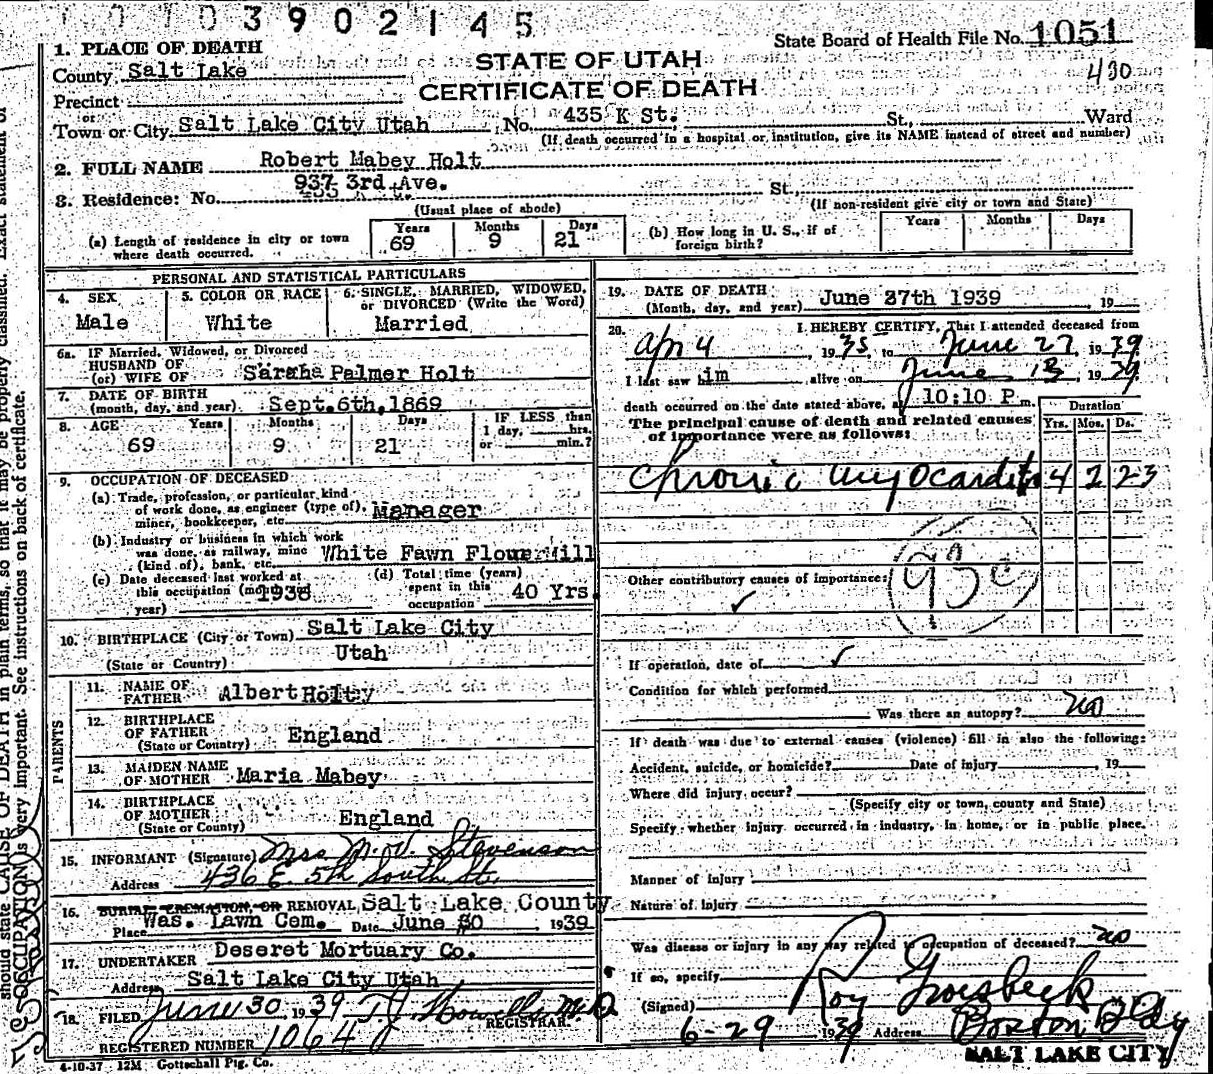 0703902145
State Board of Health File No. 1051
430
1. PLACE OF DEATH
STATE OF UTAH
County Salt Lake
CERTIFICATE OF DEATH
Precinct
or
Town or City Salt Lake City Utah No. 435 K St. St., Ward
(If death occurred in a hospital or institution, give its NAME instead of street and number)
2. FULL NAME Robert Mabey Holt
3. Residence: No. 937 3rd Ave. St.
(Usual place of abode) (If non-resident give city or town and State)
(a) Length of residence in city or town where death occurred. Years 69 Months 9 Days 21
(b) How long in U. S., if of foreign birth? Years Months Days
PERSONAL AND STATISTICAL PARTICULARS
4. SEX Male
5. COLOR OR RACE White
6. SINGLE, MARRIED, WIDOWED, or DIVORCED (Write the Word) Married
6a. IF Married, Widowed, or Divorced
HUSBAND OF
(or) WIFE OF Sarah Palmer Holt
7. DATE OF BIRTH
(month, day, and year) Sept. 6th, 1869
8. AGE Years 69 Months 9 Days 21
IF LESS than 1 day, hrs. or min.?
9. OCCUPATION OF DECEASED
(a) Trade, profession, or particular kind
of work done, as engineer (type of), Manager
miner, bookkeeper, etc.
(b) Industry or business in which work
was done, as railway, mine White Fawn Flour Mill
(kind of), bank, etc.
(c) Date deceased last worked at
this occupation (month and year) 1938
(d) Total time (years)
spent in this
occupation 40 Yrs.
10. BIRTHPLACE (City or Town) Salt Lake City
(State or Country) Utah
PARENTS
11. NAME OF FATHER Albert Holt
12. BIRTHPLACE OF FATHER
(State or Country) England
13. MAIDEN NAME OF MOTHER Maria Mabey
14. BIRTHPLACE OF MOTHER
(State or Country) England
15. INFORMANT (Signature) Mrs M. V. Stevenson
Address 436 E. 5th South St.
16. BURIAL CREMATION, OR REMOVAL, Salt Lake County
Place Was. Lawn Cem. Date June 30 1939
17. UNDERTAKER Deseret Mortuary Co.
Address Salt Lake City Utah
18. FILED June 30, 1939 T. J. Howells M.D.
REGISTRAR
REGISTERED NUMBER 1064
4-10-37 12M Gottschall Ptg. Co.
19. DATE OF DEATH
(Month, day, and year) June 27th 1939 19
20. I HEREBY CERTIFY, That I attended deceased from
Apr 4 1935, to June 27, 1939
I last saw him alive on June 13, 1939
death occurred on the date stated above, at 10:10 P m.
The principal cause of death and related causes
of importance were as follows:
Duration
Yrs. Mos. Ds.
Chronic Myocarditis 4 2 23
93c
Other contributory causes of importance:
If operation, date of
Condition for which performed
Was there an autopsy? no
If death was due to external causes (violence) fill in also the following:
Accident, suicide, or homicide? Date of injury , 19
Where did injury occur?
(Specify city or town, county and State)
Specify whether injury occurred in industry, in home, or in public place.
Manner of injury
Nature of injury
Was disease or injury in any way related to occupation of deceased? no
If so, specify
(Signed) Roy Groesbeck
6-29 1939 Address Boston Bldg
SALT LAKE CITY
should state CAUSE OF DEATH in plain terms, so that it may be properly classified. Exact statement of
OCCUPATION is very important. See instructions on back of certificate.